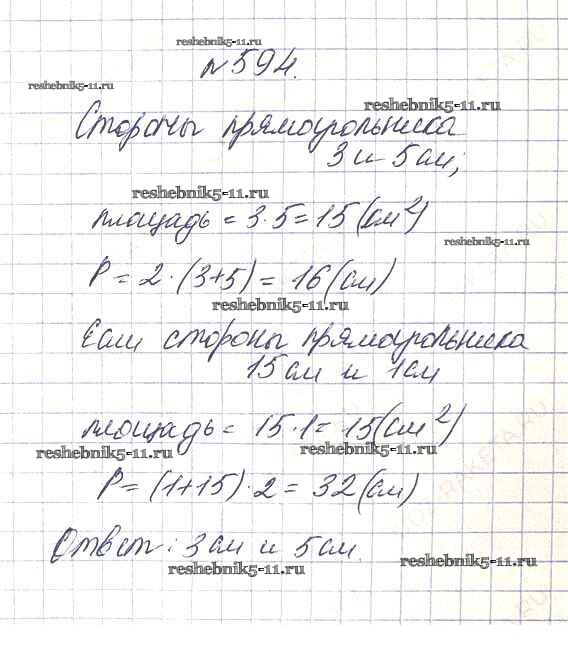 reshebnik5-11.ru
№594.
reshebnik5-11.ru
reshebnik5-11.ru
Стороны прямоугольника
3 и 5см;
reshebnik5-11.ru
площадь = 3·5=15(см²)
reshebnik5-11.ru
P = 2·(3+5) = 16(см)
reshebnik5-11.ru
Если стороны прямоугольника
15см и 1см
площадь = 15·1=15(см²)
reshebnik5-11.ru
reshebnik5-11.ru
P = (1+15)·2 = 32(см)
Ответ: 3см и 5см.
reshebnik5-11.ru
reshebnik5-11.ru